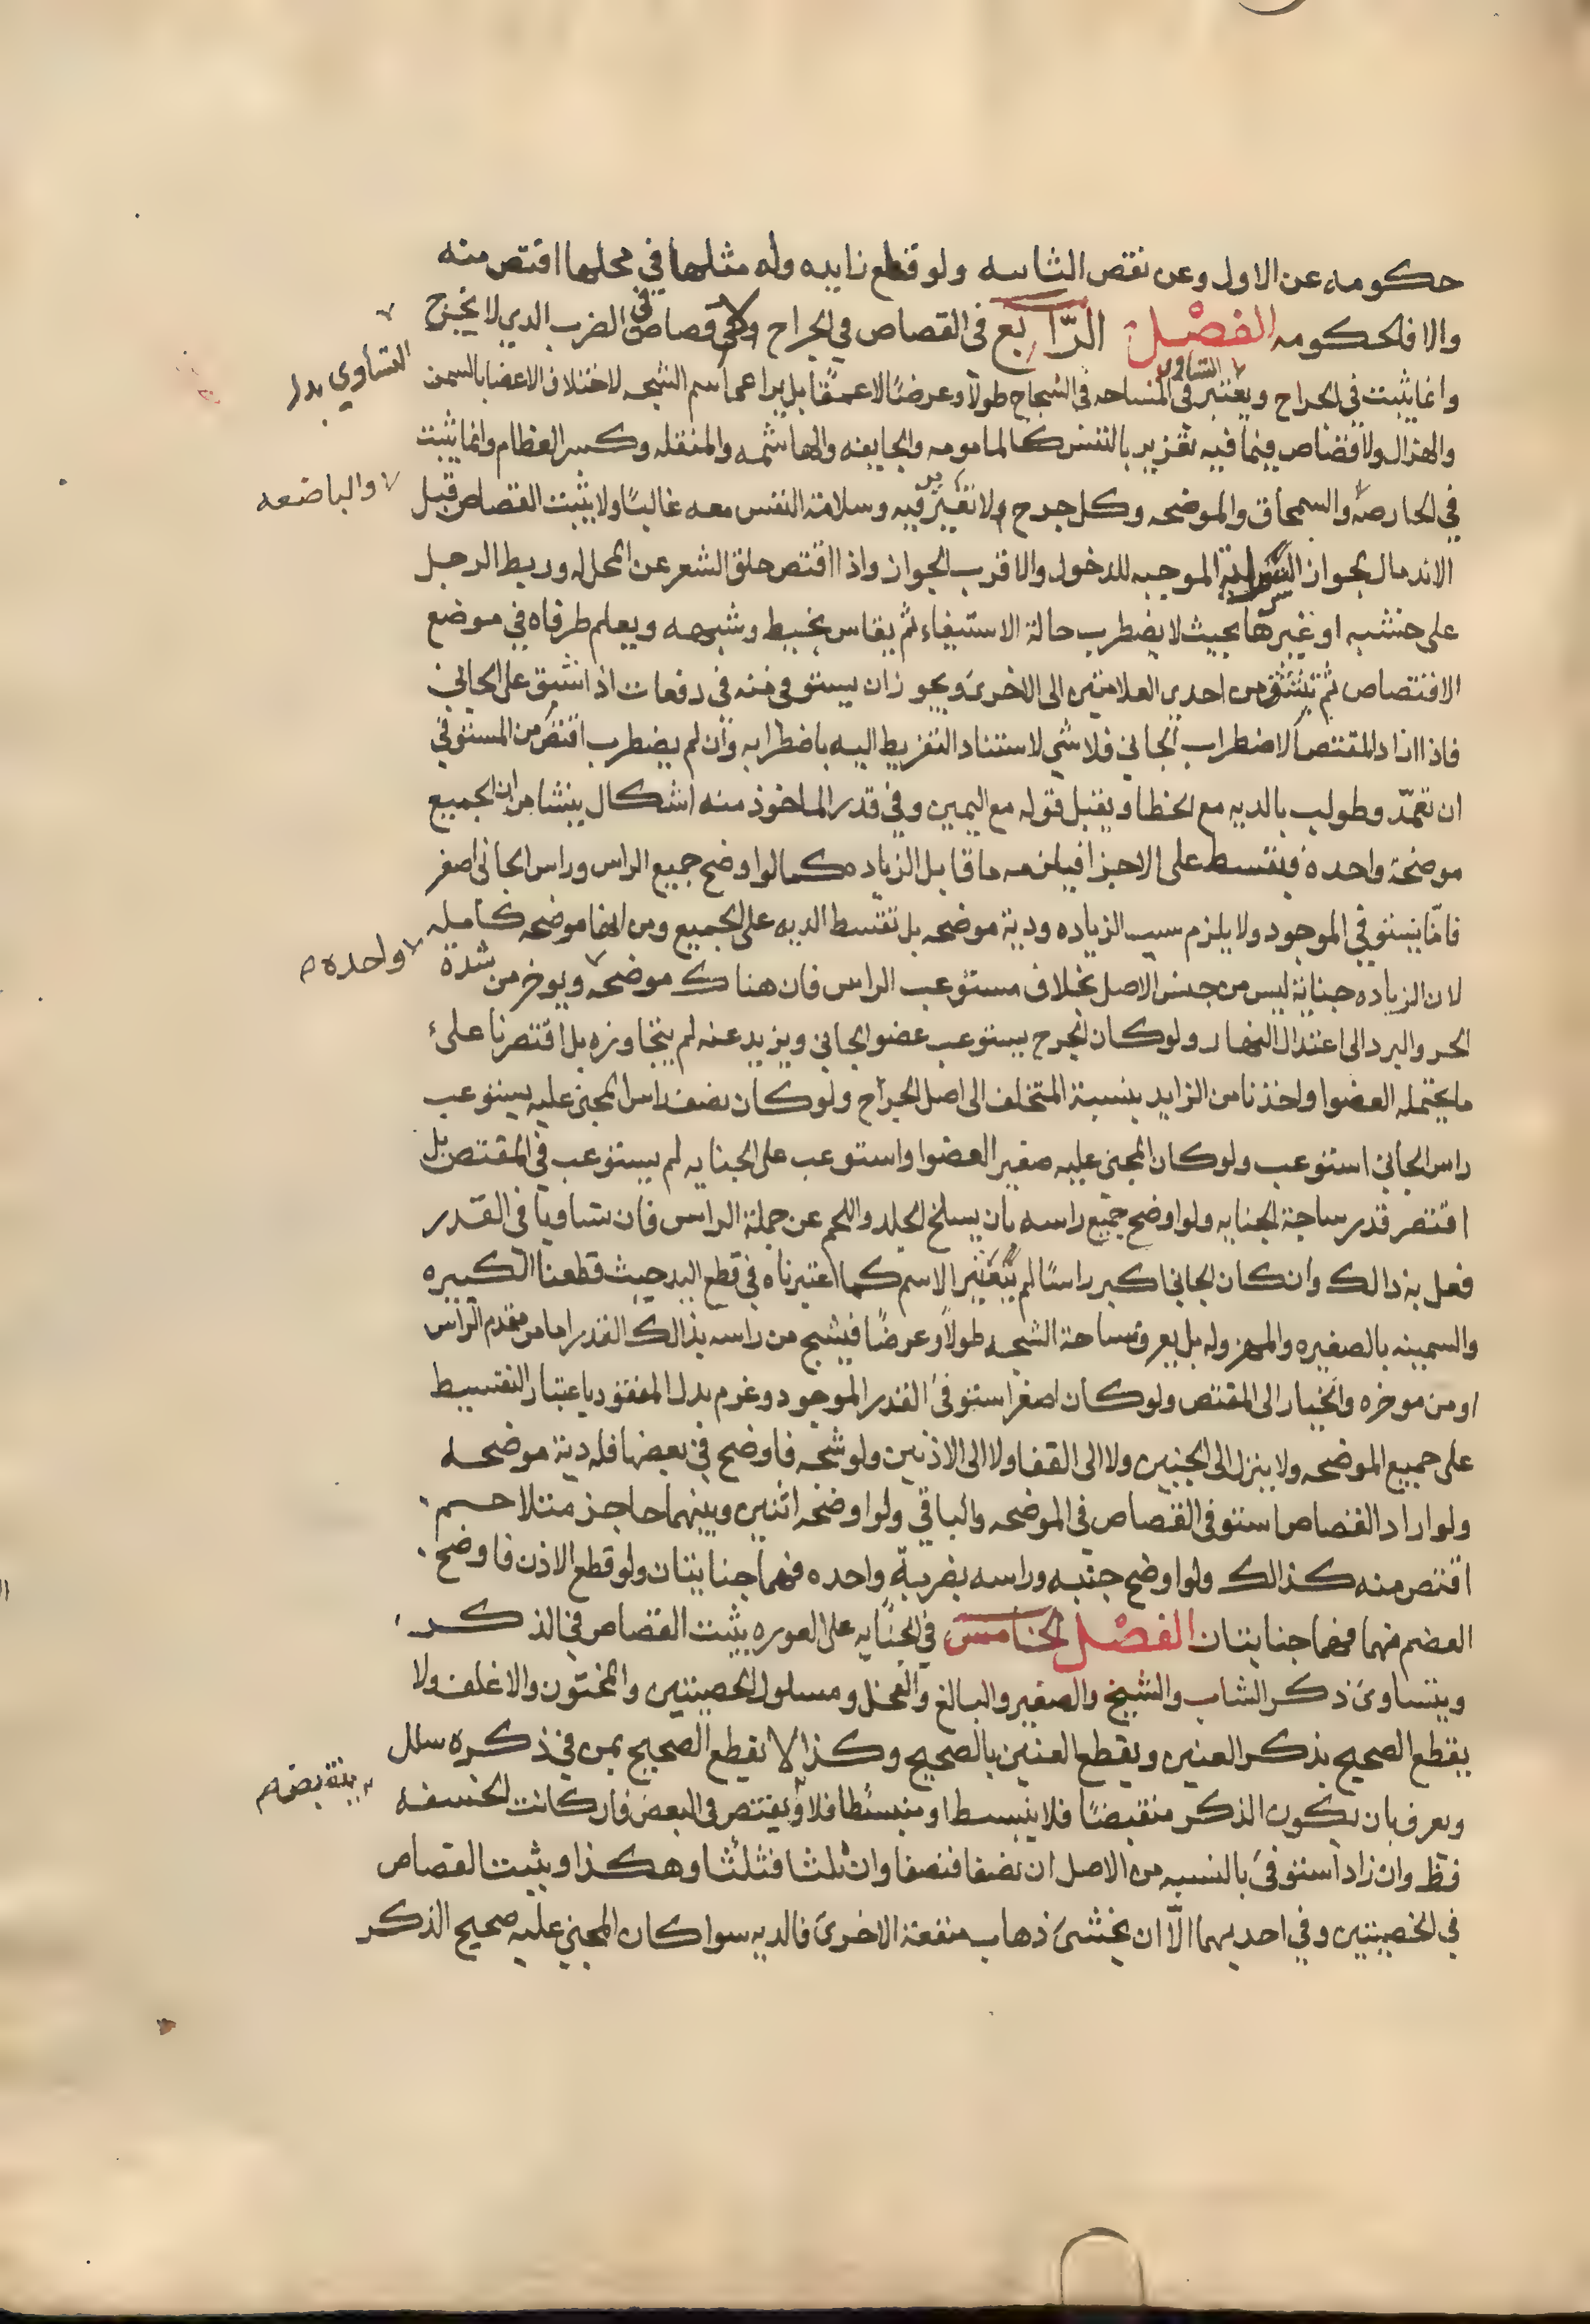 حكومه عن الاول وعن نقص الثانيه ولو قطع زايده وله مثلها في محلها اقتص منه
والا فالحكومه الفصل الرابع في القصاص في الجراح ولا قصاص في الضرب الدي لا يجرح
وانما يثبت في الجراح ويعتبر التساوي في المساحه في الشجاج طولا وعرضًا لا عمقًا بل يراعى اسم الشجه لاختلاف الاعضا بالسمن
التساوي بدل
والهزال ولا قصاص فيما فيه تغرير بالنفس كالمامومه والجايفه والهاشمه والمنقله وكسر العظام وانما يثبت
في الحارصه والسمحاق والموضحه وكل جرح لا تغرير فيه وسلامة النفس معه غالبًا ولا يثبت القصاص قبل
والباضعه
الاندمال لجواز السراية الموجبه للدخول والاقرب الجواز واذا اقتص حلق الشعر عن المحل وربط الرجل
على خشبه او غيرها بحيث لا يضطرب حالة الاستيفاء ثم يقاس بخيط وشبهه ويعلم طرفاه في موضع
الاقتصاص ثم يشق من احدى العلامتين الى الاخرى ويجوز ان يستوفى منه في دفعات اذا شق على الجاني
فاذا زاد المقتص لاضطراب الجاني فلا شي لاستناد التفريط اليه باضطرابه وان لم يضطرب اقتص من المستوفي
ان تعمد وطولب بالديه مع الخطا ويقبل قوله مع اليمين وفي قدر الماخوذ منه اشكال ينشا من ان الجميع
موضحة واحدة فيقسط على الاجزا فيلزمه ما قابل الزياده كما لو اوضح جميع الراس وراس الجاني اصغر
فانّا نستوفي الموجود ولا يلزم سبب الزياده ودية موضحه بل تقسط الديه على الجميع ومن انها موضحه كامله
لان الزياده جناية ليس من جنس الاصل بخلاف مستوعب الراس فان هناك موضحه ويوخر من شدة
واحده
الحر والبرد الى اعتدال النهار ولو كان الجرح يستوعب عضو الجاني ويزيد عنه لم يتجاوزه بل اقتصرنا على
ما يحتمله العضو واخذنا من الزايد بنسبة المتخلف الى اصل الجراح ولو كان نصف راس المجنى عليه يستوعب
راس الجاني استوعب ولو كان المجنى عليه صغير العضو واستوعب على الجنايه لم يستوعب في المقتص بل
اقتصر قدر مساحة الجنايه ولو اوضح جميع راسه بان يسلخ الجلد واللحم عن جملة الراس فان تساويا في القدر
فعل به ذالك وان كان الجاني اكبر راسًا لم يعتبر الاسم كما اعتبرناه في قطع اليد حيث قطعنا الكبيره
والسمينه بالصغيره والمهزوله بل يعرف مساحة الشجه طولًا وعرضًا فيشج من راسه بذالك القدر اما من مقدم الراس
او من موخره والخيار الى المقتص ولو كان اصغر استوفى القدر الموجود وغرم بدل المفقود باعتبار التقسيط
على جميع الموضحه ولا ينزل الى الجبين ولا الى القفا ولا الى الاذنين ولو شجه فاوضح في بعضها فله دية موضحه
ولو اراد القصاص استوفى القصاص في الموضحه والباقي ولو اوضحه اثنين وبينهما حاجز متلاحم
اقتص منه كذالك ولو اوضح جنبه وراسه بضربة واحده فهما جنايتان ولو قطع الاذن فاوضح
العضم منهما فهما جنايتان الفصل الخامس في الجنايه على العوره يثبت القصاص في الذكر
ويتساوى ذكر الشاب والشيخ والصغير والبالغ والفحل ومسلول الخصيتين والمختون والاغلف ولا
يقطع الصحيح بذكر العنين ويقطع العنين بالصحيح وكذا لا يقطع الصحيح بمن في ذكره شلل
ويعرف بان يكون الذكر منقبضًا فلا ينبسط او منبسطًا فلا ويقتص في البعض فان كانت الحشفه
فقط وان زاد استوفى بالنسبه من الاصل ان نصفا فنصفا وان ثلثا فثلثا وهكذا ويثبت القصاص
في الخصيتين وفي احديهما الّا ان يخشى ذهاب منفعة الاخرى فالديه سوا كان المجني عليه صحيح الذكر